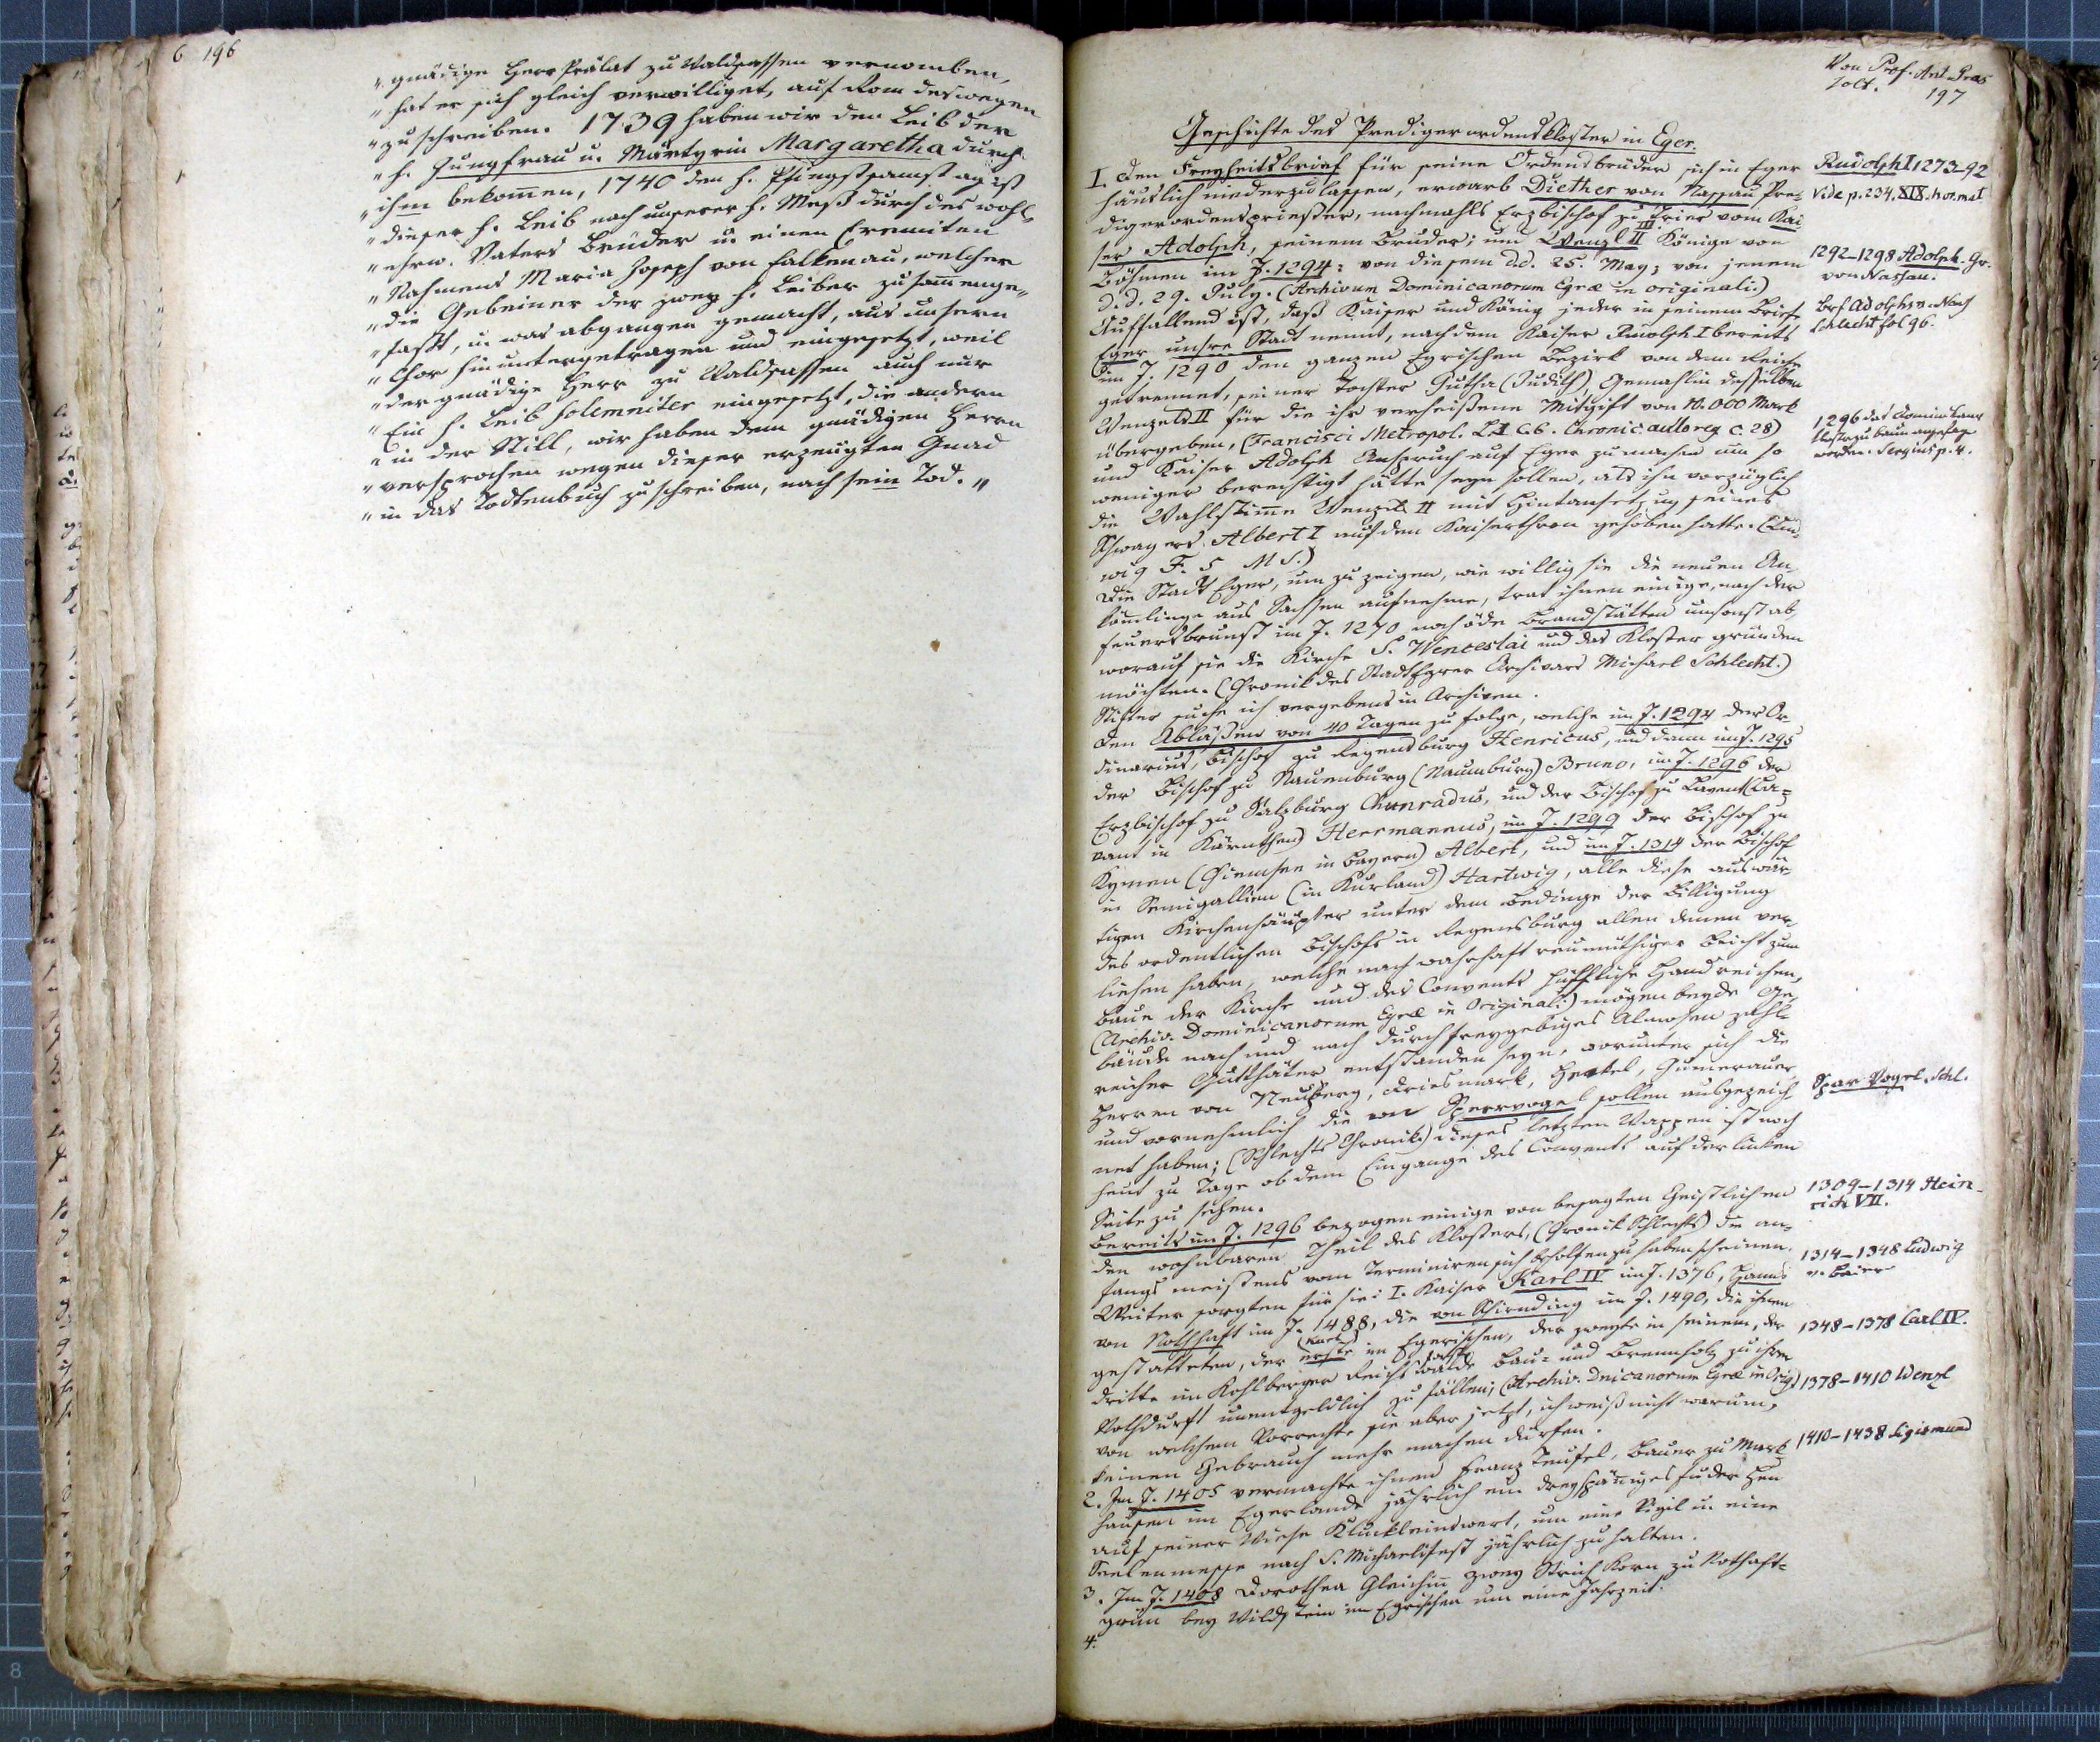 6 196
„gnädige Herr Prälat zu Waldsassen vernomben,
„hat er sich gleich verwilliget, auf Rom deswegen
„zu schreiben. 1739 haben wir den Leib der
„h. Jungfrau u. Märtyrin Margaretha durch
„ihm bekom̄en, 1740 den h. Pfingstsamstag ist
„dieser h. Leib nach unserer h. Meß durch des wohl„
„ehrw. Vaters Brüder u. einen Eremiten
„Nahmens Maria Joseph von Falkenau, welcher
„die Gebeiner der zwey h. Leiber zusam̄enge„
„faßt, u. was abgangen gemacht, aus unserm
„Chor hinuntergetragen und eingesetzt, weil
„der gnädige Herr zu Waldsassen auch nur
„Ein h. Leib solemniter eingesetzt, die andern
„in der Still, wir haben dem gnädigen Herrn
„versprochen wegen dieser erzeugten Gnad
„in das Todtenbuch zu schreiben, nach sein Tod.„
Von Prof. Ant. Gras
sold.
197
Geschichte des Predigerordenskloster in Eger.
I. Den Freyheitsbrief für seine Ordensbrüder sich in Eger
häuslich niederzulassen, erwarb Diether von Nassau Pre-
digerordenspriester, nachmahls Erzbischof zu Trier vom Kai
ser Adolph, seinem Bruder; und Wenzl II III. Könige von
Böhmen im J. 1294: von diesem d.d. 25. May; von jenem
d.d. 29. July. (Archivum Dominicanorum Egræ in originali.)
Auffallend ist, daß Kaiser und König jeder in seinem Briefe
Eger unsre Stadt nennt, nachdem Kaiser Rudolph I bereits
im J. 1290 den ganzen Egrischen Bezirk von dem Reiche
getrennet, seiner Tochter Gutha (Judith), Gemahlin desselben
Wenzels II für die ihr verheißene Mitgift von 10.000 Mark
übergeben, (Francisci Metropol. L.I C.6. Chronic aulæ reg c. 28)
und Kaiser Adolph Anspruch auf Eger zu machen um so
weniger berechtigt hätte seyn sollen, als ihn vorzüglich
die Wahlstim̄e Wenzels II mit Hintansetzung seines
Schwagers Albert I auf den Kaiserthron gehoben hatte. (Lud-
wig F. 5 MS.)
Die Stadt Eger, um zu zeigen, wie willig sie die neuen An
köm̄linge aus Sachsen aufnehme, trat ihnen einige, nach der
Feuersbrunst im J. 1270 noch öde Brandstätten umsonst ab,
worauf sie die Kirche S. Wenceslai und das Kloster gründen
möchten. (Chronik des Stadt Egrer Archivars Michael Schlecht.)
Stifter suche ich vergebens in Archiven.
Den Ablässen von 40 Tagen zu folge, welche im J. 1294 der Or-
dinarius, Bischof zu Regensburg Henricus, und dann im J. 1295
der Bischof zu Nauenburg (Naumburg) Bruno, im J. 1296 der
Erzbischof zu Salzburg Chunradus, und der Bischof zu Lavent (La=
vant in Kärnthen) Herrmannus, im J. 1299 der Bischof zu
Kymen (Chiemsee in Bayern) Albert, und im J. 1314 der Bischof
in Semigallien (in Kurland) Hartwig, alle diese auswär-
tigen Kirchenhäupter unter dem Bedinge der Billigung
des ordentlichen Bischofs in Regensburg allen denen ver-
liehen haben, welche nach wahrhaft reumüthiger Beicht zum
Baue der Kirche und des Convents hilfliche Hand reichen,
(Archiv. Dominicanorum Egræ in Originali) mögen beyde Ge-
bäude nach und nach durch freygebiges Almosen zahl-
reicher Gutthäter entstanden seyn, worunter sich die
Herren von Neuberg, Driesmark, Hertel, Gumerauer
und vornehmlich die von Sperrvogel sollen ausgezeich
net haben; (Schlechts Chronik) dieses letzten Wappen ist noch
heut zu Tage ob dem Eingange des Convents auf der linken
Seite zu sehen.
Bereits im J. 1296 bezogen einige von besagten Geistlichen
den wohnbaren Theil des Klosters, (Chronik Schlechts) die an-
fangs meistens vom Terminiren sich geholfen zu haben scheinen.
Weiter sorgten für sie: I. Kaiser Karl IV im J. 1376, Hanns
von Nothhaft im J. 1488, die von Schirnding im J. 1490, die ihnen
gestatteten, der erste (Karl) im Egerischen, der zweyte in seinem, der
dritte im Kohlberger Reichs Forst walde Bau= und Brennholz zu ihrer
Nothdurft unentgeldlich zu fällen; (Archiv. Dnicanorum Egræ in Orig.)
von welchem Vorrechte sie aber jetzt, ich weiß nicht warum,
keinen Gebrauch mehr machen dürfen.
2. Im J. 1405 vermachte ihnen Franz Teufel, Bauer zu Mark
hausen im Egerlande jährlich ein dreyspän̄iges Fuder Heu
auf seiner Wiese Kluckleinswert, um eine Vigil u. eine
Seelenmesse nach S. Michaelisfest jährlich zu halten.
3. Im J. 1408 Dorothea Gleichin̄ zwey Strich Korn zu Nothaft=
grün bey Wildstein im Egrischen um eine Jahrzeit.
4.
Rudolph I 1273-92
Vide p. 234. XIX. h or. mst
1292-1298 Adolph. Gr.
von Nassau.
Brf Adolphs v. Nass
Schlecht fol 96.
1296 das Dominikaner
Kloster zu bauen angefang
worden. Sergius p. 4.
Spar Vogel. Schl.
1309-1314 Hein-
rich VII.
1314-1348 Ludwig
v. Baiern
1348-1378 Carl IV.
1378-1410 Wenzl
1410-1438 Sigismund